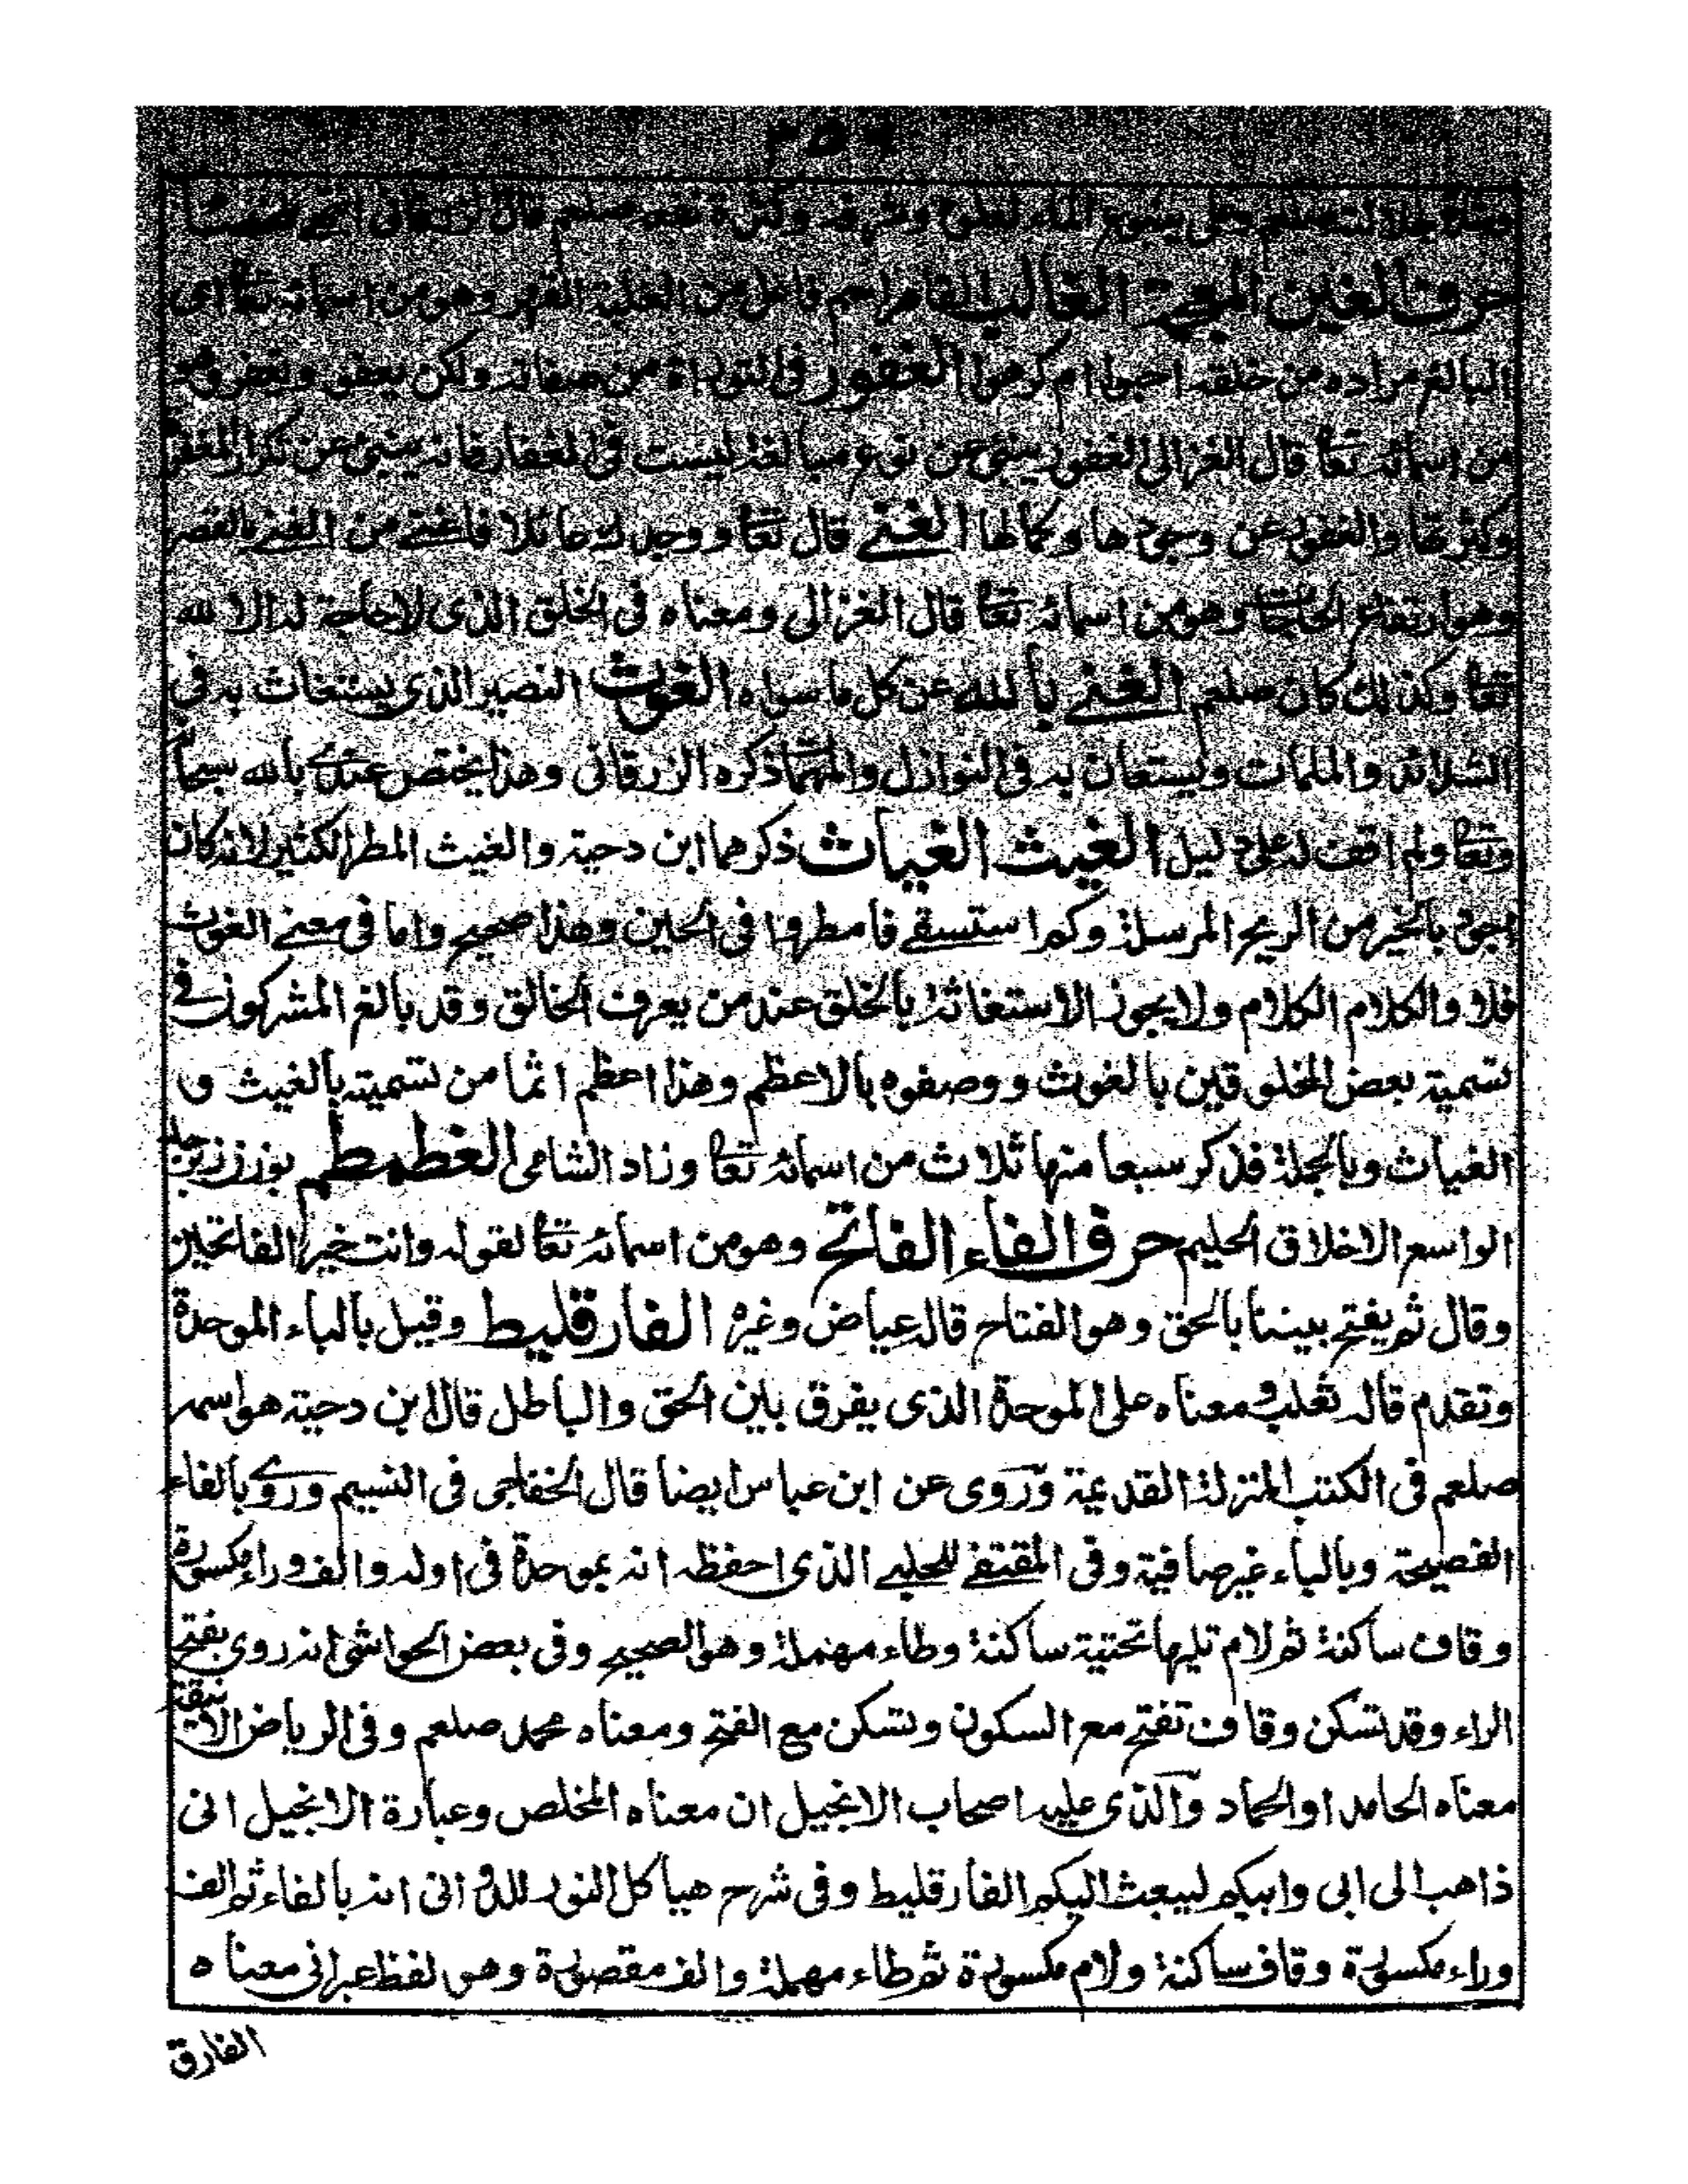 ٢٥٦
حرف الغين المعجمة الغالب القاهر اسم فاعل من الغلبة القهر وهو من اسمائه تعا اى
البالغ مراده من خلقه احبوا ام كرهوا الغفور فى التوراة من صفاته ولكن يعفو ويغفر وهو
من اسمائه تعا قال الغزالى الغفور ينبئ عن نوع مبالغة ليست فى الغفار فانه ينبئ عن تكرار المغفرة
وكثرتها والغفور عن وجودها وكمالها الغنے قال تعا ووجدك عائلا فاغنے من الغنے بالقصر
وهو ارتفاع الحاجات وهو من اسمائه تعا قال الغزالى ومعناه فى الخلق الذى لا حاجة له الا لله
تعا وكذلك كان صلعم الغنے بالله عن كل ما سواه الغوث النصير الذى يستغاث به فى
الشدائد والملمات ويستعان به فى النوازل والمهمات ذكره الزرقانى وهذا يختص عندى بالله سبحانه
وتعا ولم اقف له على دليل الغيث الغياث ذكرهما ابن دحية والغيث المطر الكثير لانه كان
اجود بالخير من الريح المرسلة وكم استسقے فامطروا فى الحين وهذا صحيح واما فى معنے الغوث
فلا والكلام الكلام ولا يجوز الاستغاثة بالخلق عند من يعرف الخالق وقد بالغ المشركون فے
تسمية بعض المخلوقين بالغوث ووصفوه بالاعظم وهذا اعظم اثما من تسميته بالغيث و
الغياث وبالجملة فذكر سبعا منها ثلاث من اسمائه تعا وزاد الشامى الغطمطم بوزن زبرجد
الواسع الاخلاق الحليم حرف الفاء الفاتح وهو من اسمائه تعا لقوله وانت خير الفاتحين
وقال ثم يفتح بيننا بالحق وهو الفتاح قاله عياض وغيره الفارقليط وقيل بالباء الموحدة
وتقدم قاله ثعلب ومعناه على الموحدة الذى يفرق بين الحق والباطل قال ابن دحية هو اسمه
صلعم فى الكتب المنزلة القديمة وروى عن ابن عباس ايضا قال الخفاجى فى النسيم وروے بالفاء
الفصيحة وبالباء غير صافية وفى المقتفے للحلبے الذى احفظه انه بموحدة فى اوله والف وراء مكسورة
وقاف ساكنة ثم لام تليها تحتية ساكنة وطاء مهملة وهو الصحيح وفى بعض الحواشى انه روى بفتح
الراء وقد تسكن وقاف تفتح مع السكون وتسكن مع الفتح ومعناه محمد صلعم وفى الرياض الانيقة
معناه الحامد او الحماد والذى عليه اصحاب الانجيل ان معناه المخلص وعبارة الانجيل انى
ذاهب الى ابى وابيكم ليبعث اليكم الفارقليط وفى شرح هياكل النور للدوانى انه بالفاء ثم الف
وراء مكسورة وقاف ساكنة ولام مكسورة ثم طاء مهملة والف مقصورة وهو لفظ عبرانى معناه
الفارق